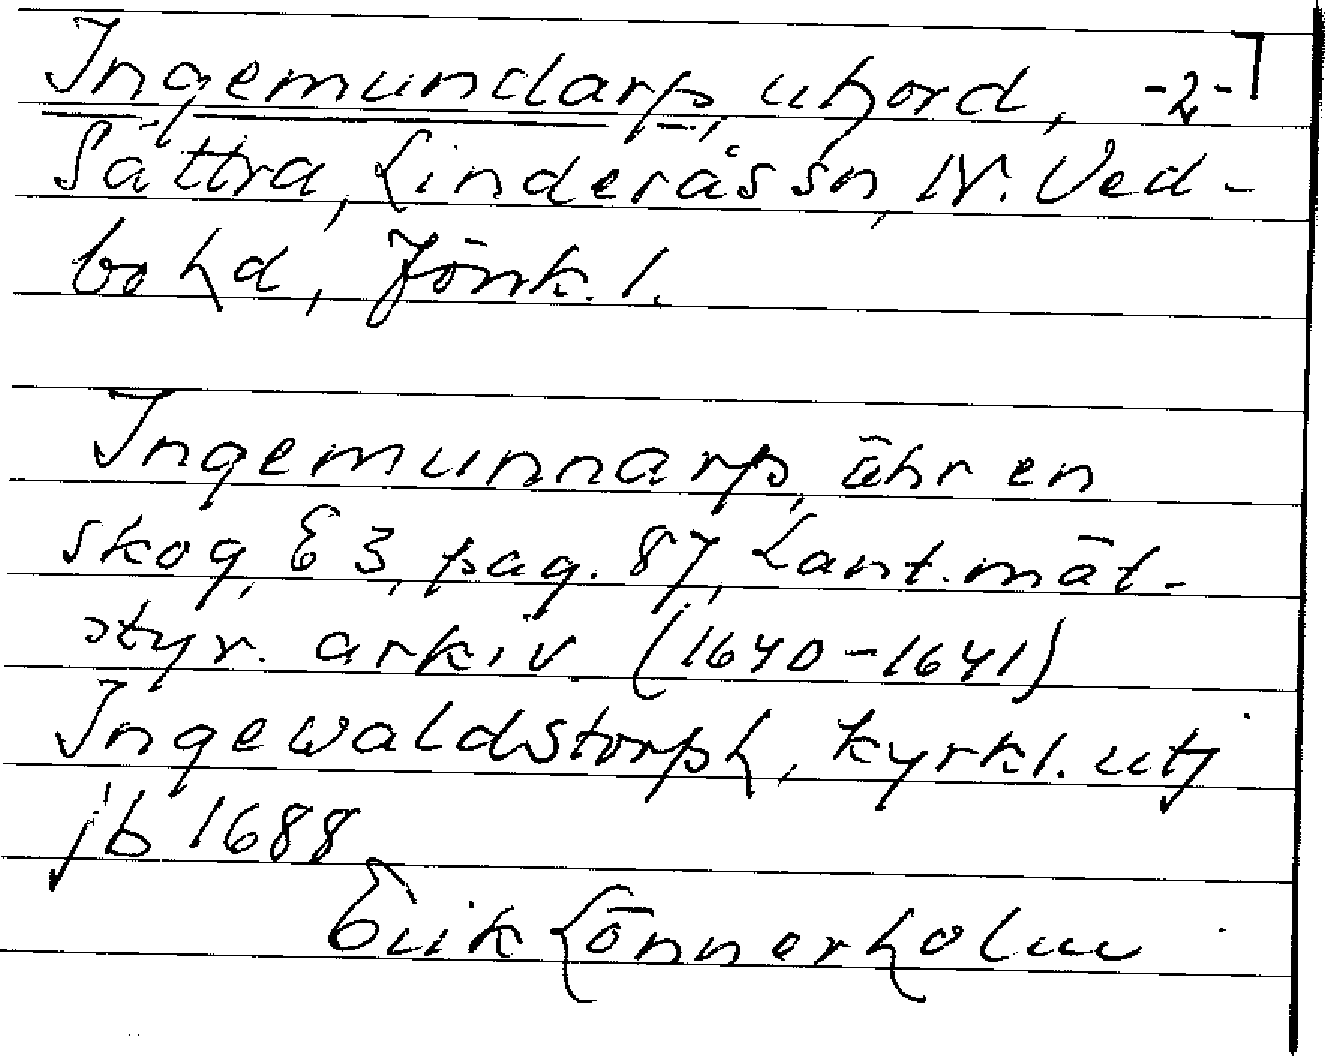 Ingemundarp, utjord, -2-
Sättra, Linderås sn, N. Ved-
bo hd, Jönk. l.
Ingemunnarp, ähr en
skog, E 3, pag. 87, Lant.mät.
styr. arkiv (1640-1641)
Ingewaldstorph, kyrkl. utj
jb 1688
Erik Lönnerholm